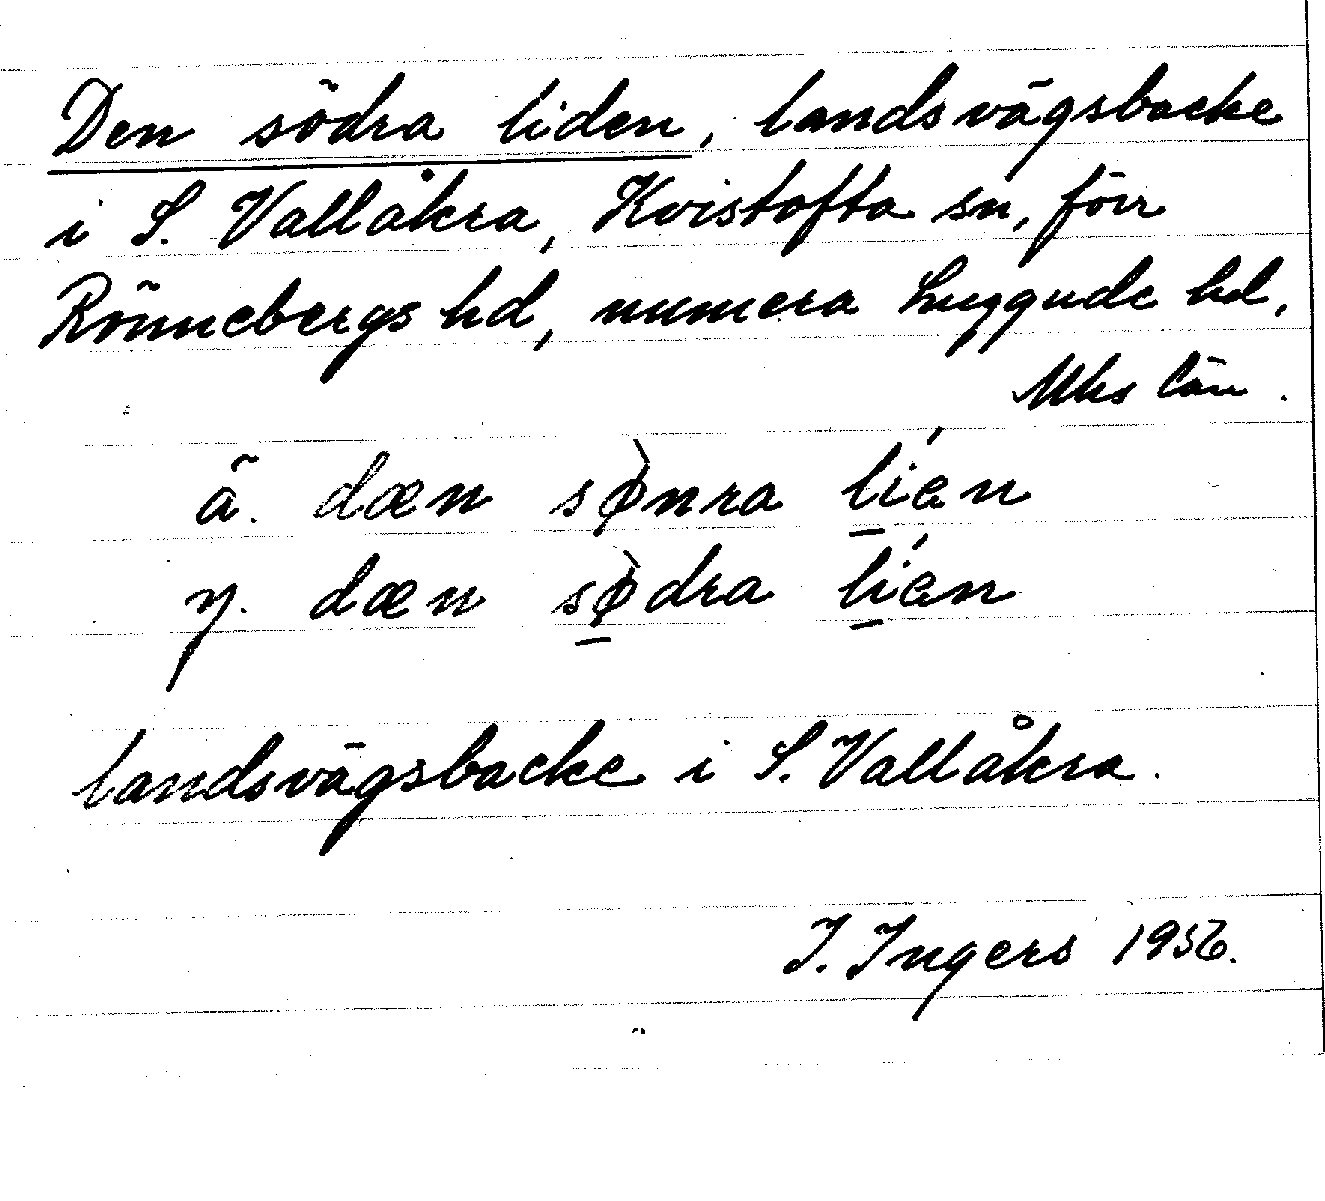 Den södra liden, landsvägsbacke
i S. Vallåkra, Kvistofta sn, förr
Rönnebergs hd, numera Luggude hd,
Mhs län.
ä. dæn sø̀nra líen
y. dæn sø̀dra líen
landsvägsbacke i S. Vallåkra.
I. Ingers 1956.